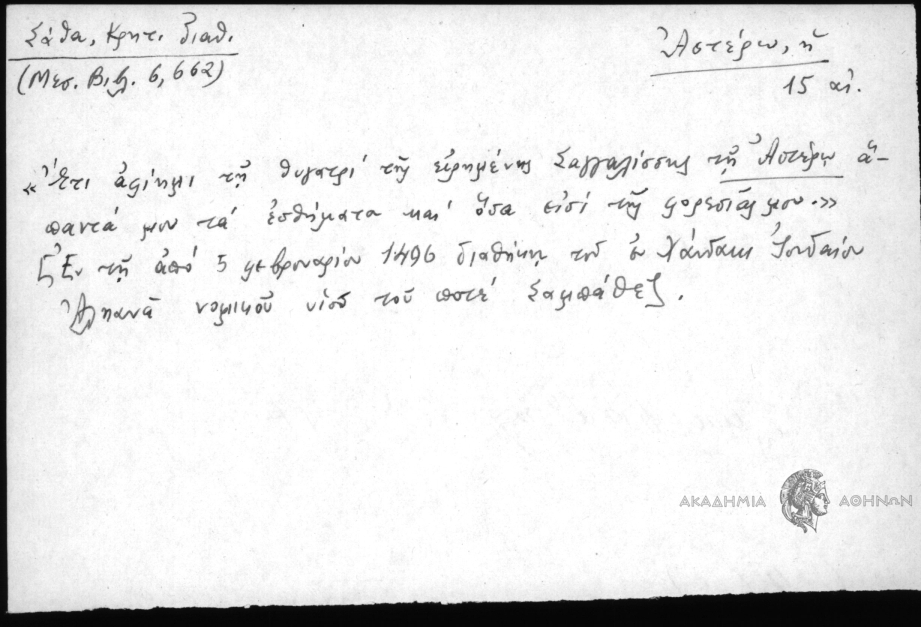 Σάθα, Κρητ. διαθ.
(Μεσ. Βιβλ. 6, 662)
Ἀστέρω, ἡ
15 αἰ.
«Ἔτι ἀφίημι τῇ θυγατρί τῆς εἰρημένης Σαγγαλίσσης τῇ Ἀστέρω ἅ-
παντά μου τά ἐσθήματα καί ὅσα εἰσί τῆς φορεσιᾶς μου.»
[Ἐν τῇ ἀπό 5 φεβρουαρίου 1496 διαθήκῃ τοῦ ἐν Χάνδακι Ἰουδαίου
νομικοῦ υἱοῦ τοῦ ποτέ Σαμπάθε].
ΑΚΑΔΗΜΙΑ ΑΘΗΝΩΝ